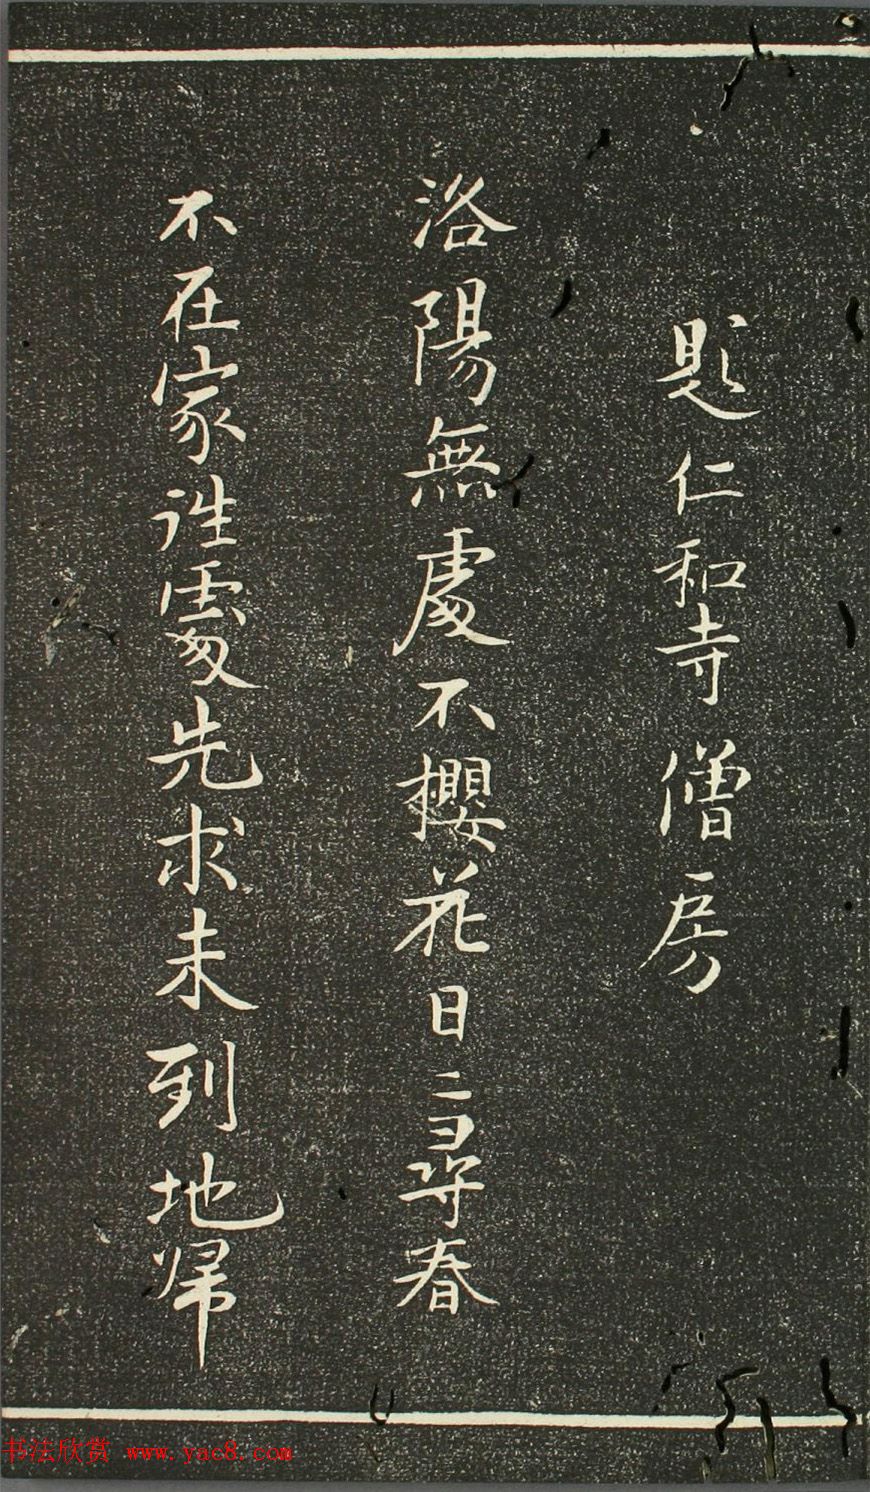 題仁和寺僧房
洛陽無處不櫻花日〻尋春
不在家往處先求未到地歸
书法欣赏 www.yac8.com